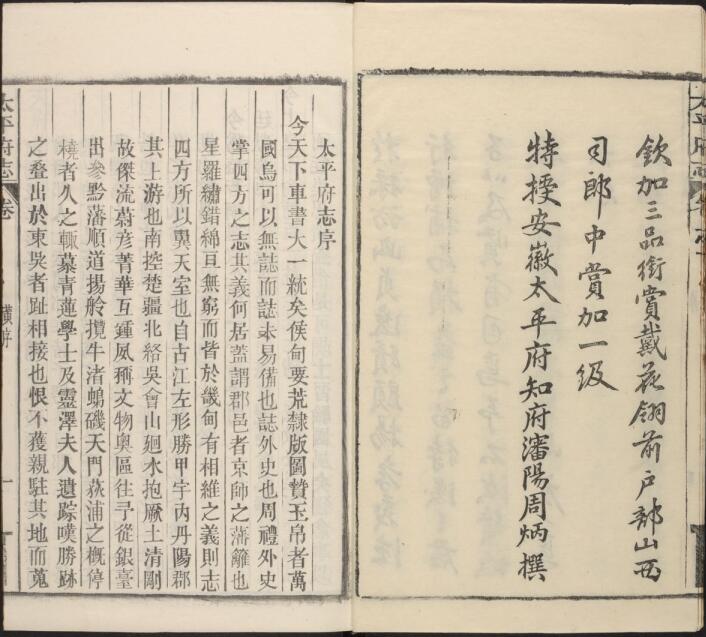 欽加三品銜賞戴花翎前戶部山西
司郎中賞加一級
特授安徽太平府知府瀋陽周炳撰
太平府志
太平府志序
今天下車書大一統矣侯甸要荒隸版圖贊玉帛者萬
國烏可以無誌而誌未易備也誌外史也周禮外史
掌四方之志其義何居蓋謂郡邑者京師之藩籬也
星羅繡錯綿亘無窮而皆於畿甸有相維之義則志
四方所以翼天室也自古江左形勝甲宇內丹陽郡
其上游也南控楚疆北絡吳會山廻水抱厥土清剛
故傑流蔚彥菁華互鍾夙稱文物奧區往予從銀臺
出參黔藩順道揚舲攬牛渚蟂磯天門荻浦之概停
橈者久之輒慕青蓮學士及靈澤夫人遺踪嘆勝跡
之叠出於東吳者趾相接也恨不獲親駐其地而蒐
太平府志
卷
序
一